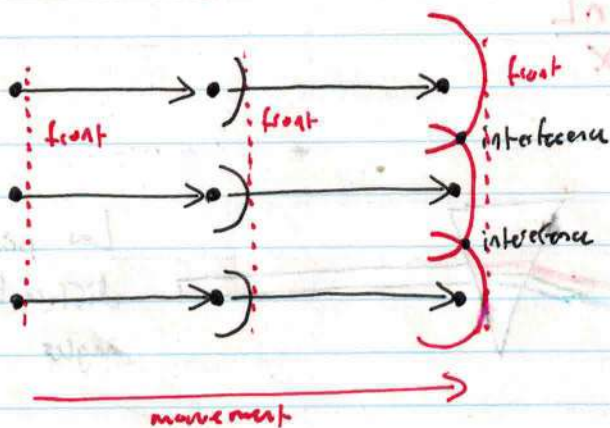 front
front
front
interference
interference
movement